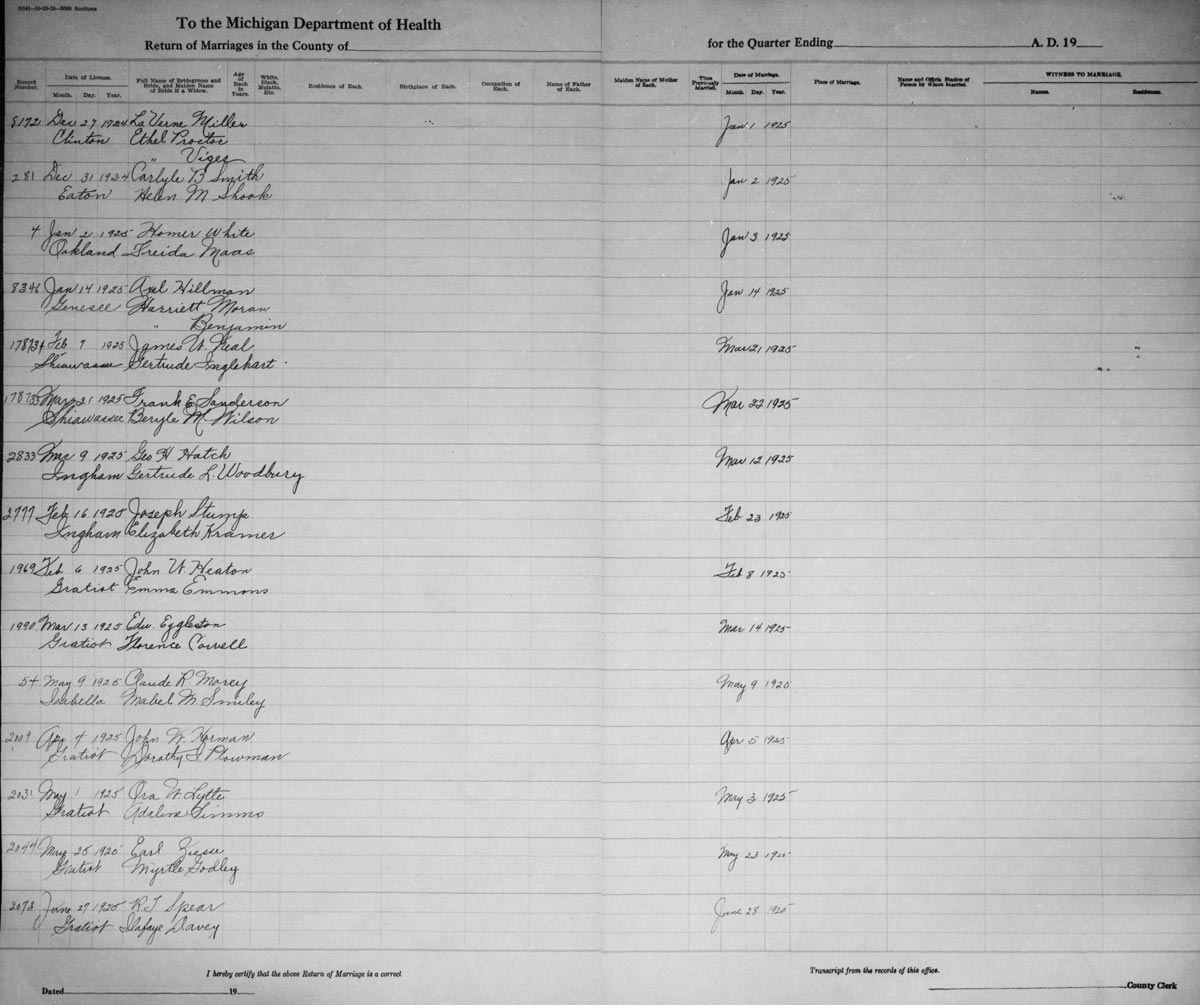 H141-10-20-24-3000 Sections
To the Michigan Department of Health
Return of Marriages in the County of
for the Quarter Ending A. D. 19
Record Number. Date of License. Month. Day. Year. Full Name of Bridegroom and Bride, and Maiden Name of Bride if a Widow. Age of Each in Years. White, Black, Mulatto, Etc. Residence of Each. Birthplace of Each. Occupation of Each. Name of Father of Each. Maiden Name of Mother of Each. Times Previously Married. Date of Marriage. Month. Day. Year. Place of Marriage. Name and Official Station of Person by Whom Married. WITNESS TO MARRIAGE. Names. Residences.
8172 Dec 27 1924 La Verne Miller Jan 1 1925
Clinton Ethel Proctor
" Viges
281 Dec 31 1924 Carlyle B Smith Jan 2 1925
Eaton Helen M Shook
4 Jan 2 1925 Homer White Jan 3 1925
Oakland Freida Maas
8346 Jan 14 1925 Axel Hillman Jan 14 1925
Genesee Harriett Moran
" Benjamin
178734 Feb 7 1925 James W. Neal Mar 21 1925
Shiawassee Gertrude Inglehart
178735 Mar 21 1925 Frank E Sanderson Mar 22 1925
Shiawassee Beryle M Wilson
2833 Mar 9 1925 Geo H Hatch Mar 12 1925
Ingham Gertrude L. Woodbury
2777 Feb 16 1925 Joseph Stump Feb 23 1925
Ingham Elizabeth Kramer
1969 Feb 6 1925 John W Heaton Feb 8 1925
Gratiot Emma Emmons
1990 Mar 13 1925 Edw. Eggleston Mar 14 1925
Gratiot Florence Cowell
54 May 9 1925 Claude R. Morey May 9 1925
Isabella Mabel M. Smiley
2009 Apr 4 1925 John W. Horman Apr 5 1925
Gratiot Dorothy I Plowman
2031 May 1 1925 Ora W Lytle May 3 1925
Gratiot Adaline Simms
2044 May 25 1925 Earl May 23 1925
Gratiot Myrtle Godley
2073 June 27 1925 R T Spear June 28 1925
Gratiot Ilafaye Davey
I hereby certify that the above Return of Marriage is a correct
Transcript from the records of this office.
Dated 19
County Clerk